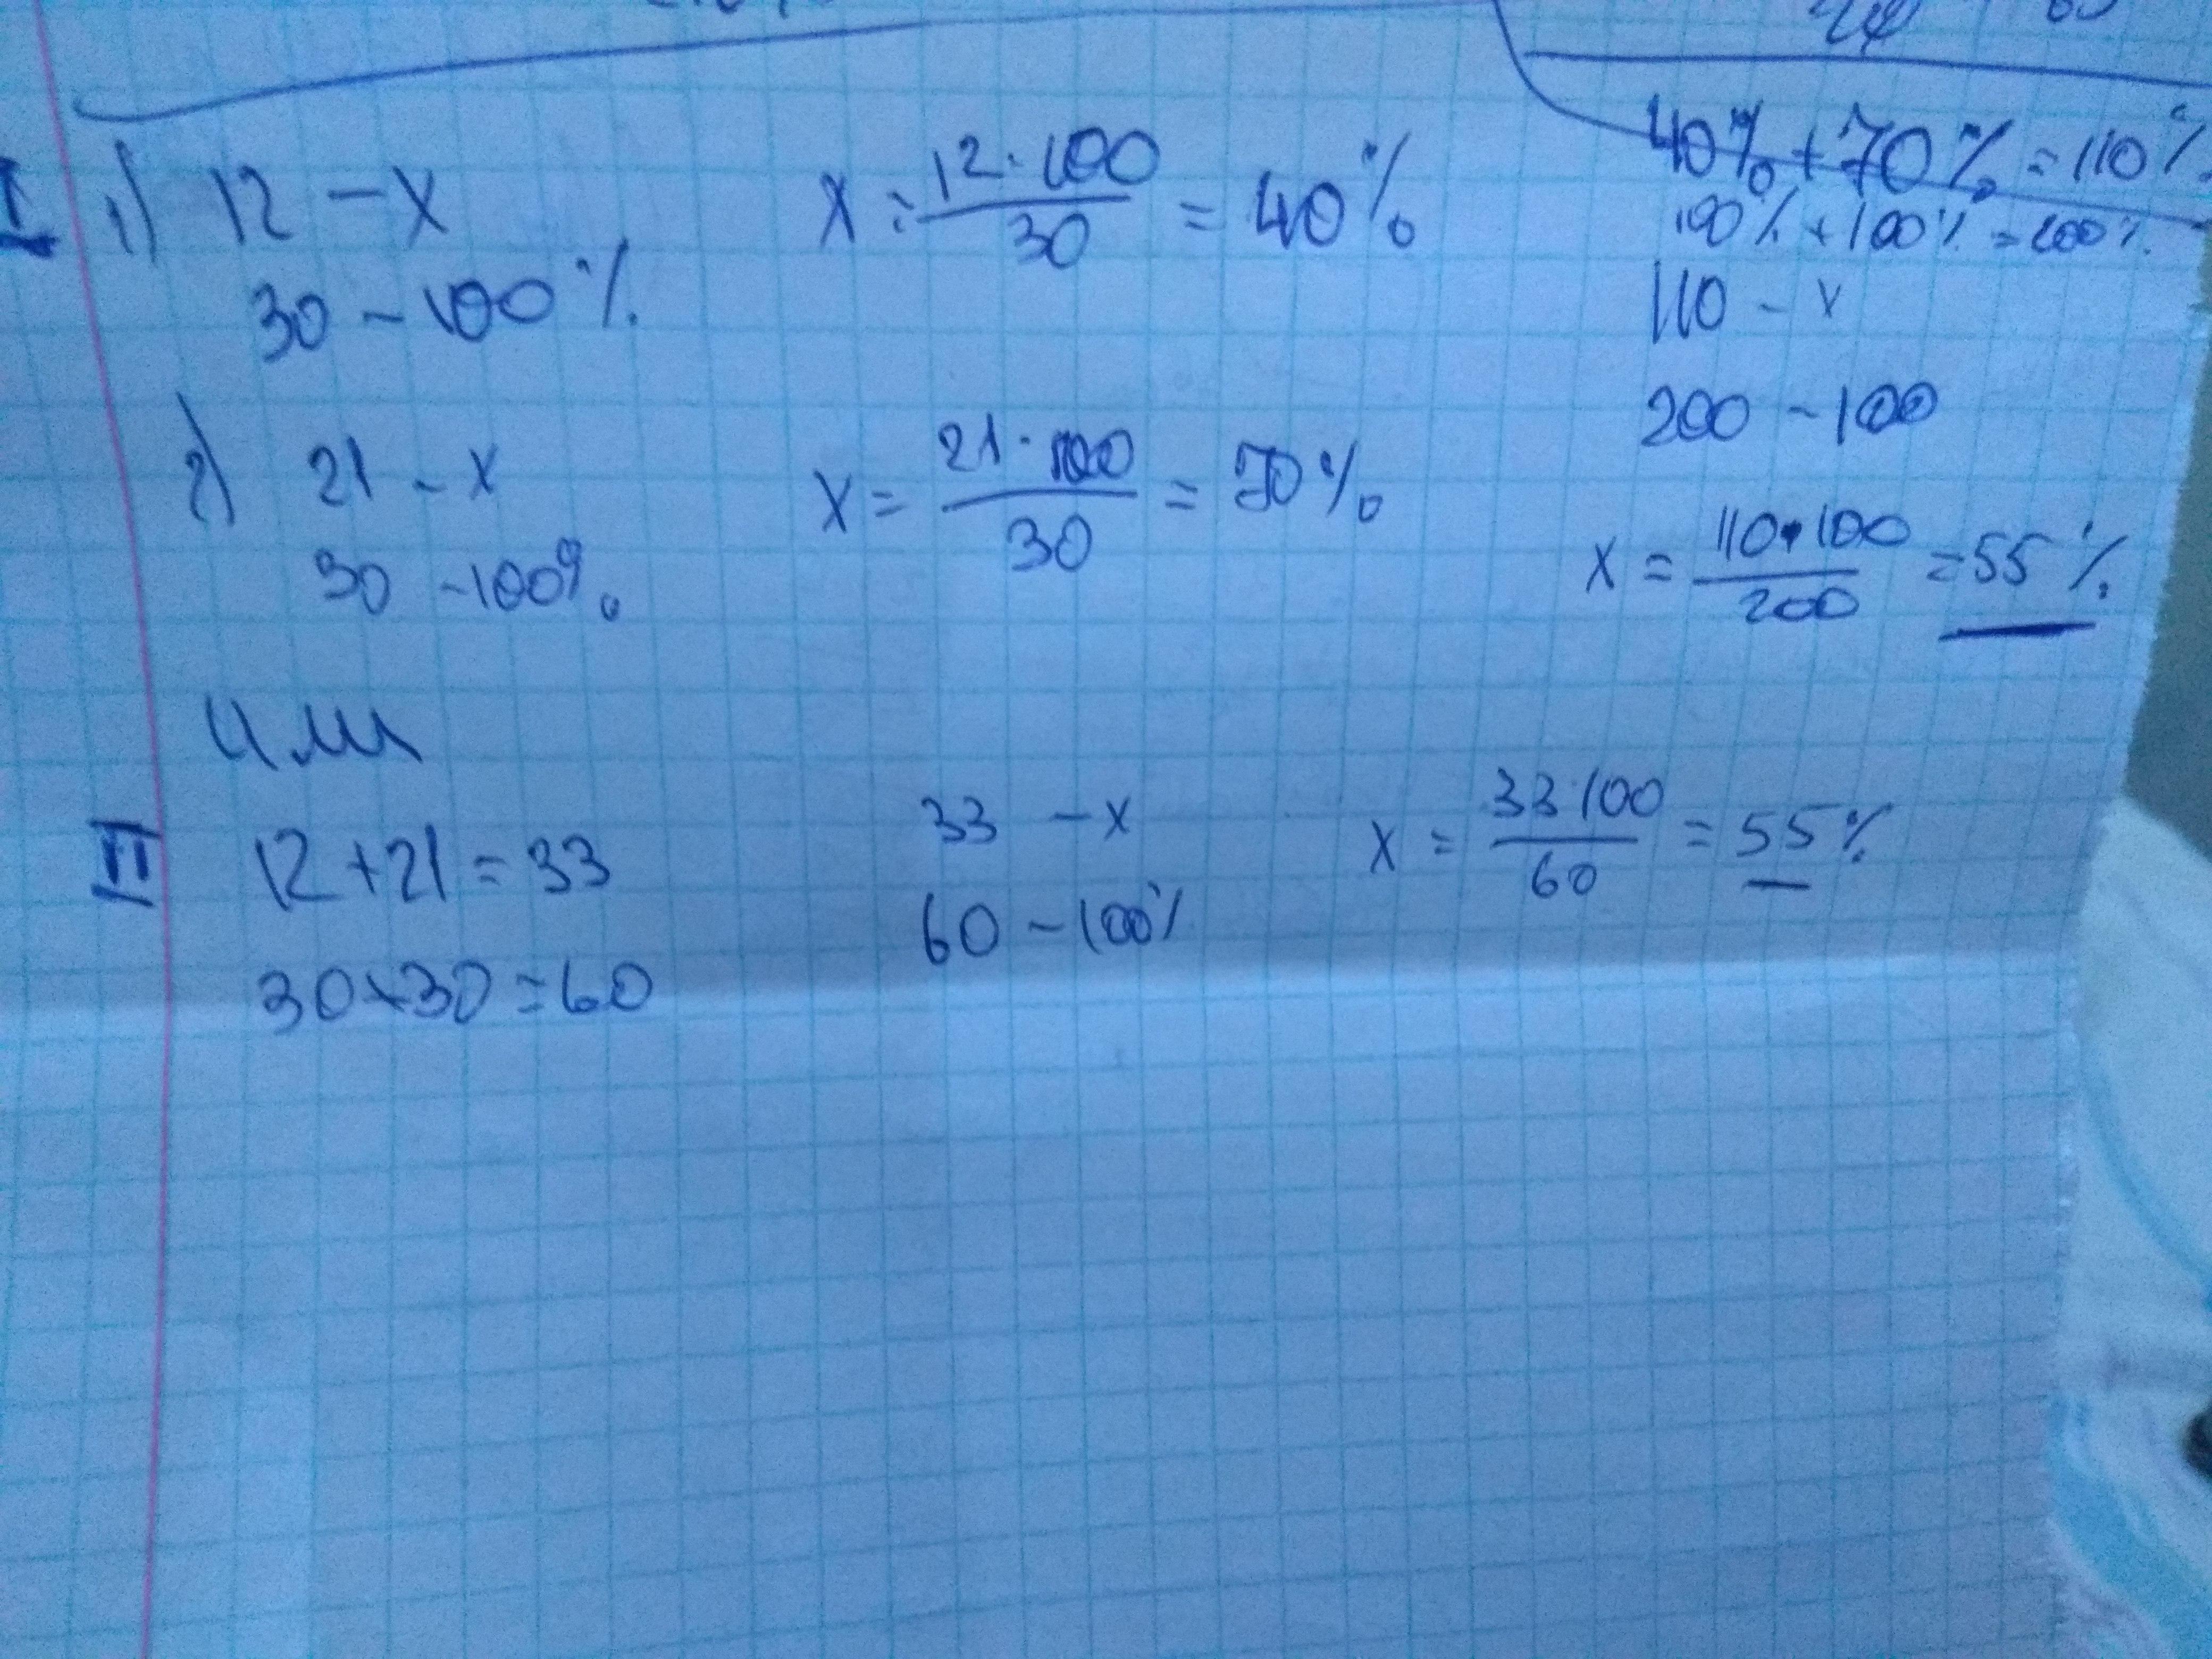 I 1) 12 – x
30 – 100%
x = 12 · 100 / 30 = 40%
2) 21 – x
30 – 100%
x = 21 · 100 / 30 = 70%
40% + 70% = 110%
100% + 100% = 200%
110 – x
200 – 100
x = 110 · 100 / 200 = 55%
или
II 12 + 21 = 33
30 + 30 = 60
33 – x
60 – 100%
x = 33 · 100 / 60 = 55%